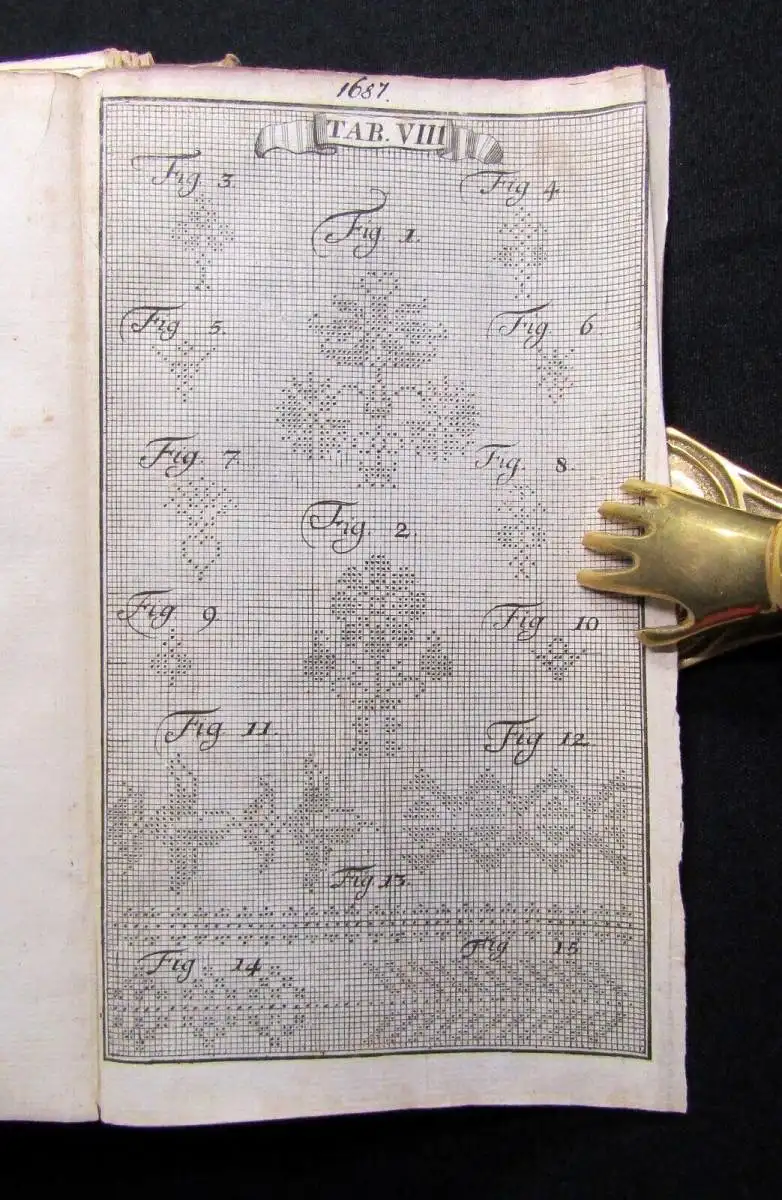 1687.
TAB. VIII
Fig. 3.
Fig 4.
Fig 1.
Fig 5.
Fig 6.
Fig. 7.
Fig. 8.
Fig. 2.
Fig 9.
Fig 10
Fig 11.
Fig 12.
Fig 13.
Fig 14
Fig 15